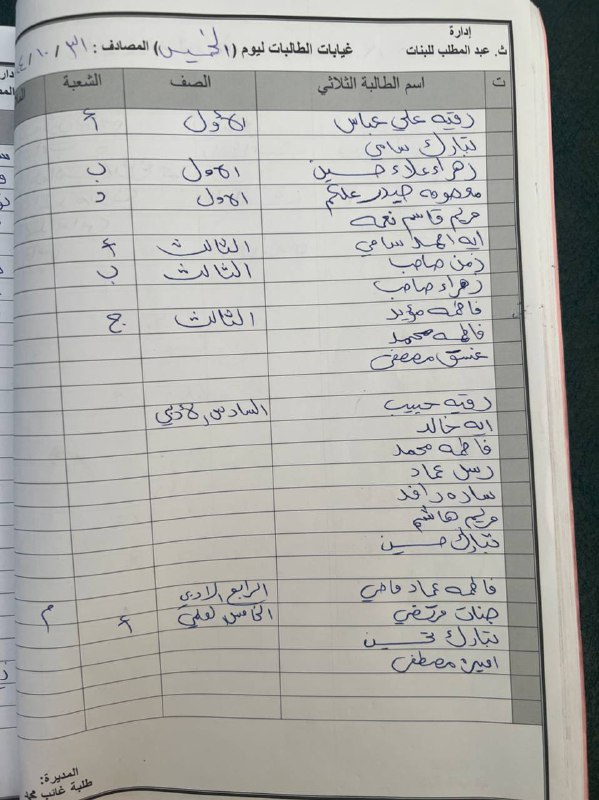 إدارة
ث. عبد المطلب للبنات غيابات الطالبات ليوم (الخميس) المصادف : ٣١ / ١٠ /
ت اسم الطالبة الثلاثي الصف الشعبة
رقيه علي عباس الأول أ
تبارك سامي
زهراء علاء حسين الاول ب
معصومه حيدر الاول د
مريم قاسم نعمه
ايه احمد سامي الثالث أ
زمن صاحب الثالث ب
زهراء صاحب
فاطمه مؤيد الثالث ج
فاطمه محمد
مصطفى
رقيه حبيب السادس الأدبي
ايه خالد
فاطمه محمد
رسل عماد
ساره رافد
مريم هاشم
تبارك حسين
فاطمه عماد الرابع الادبي
جنات مرتضى الخامس العلمي أ م
تبارك تحسين
اميره مصطفى
المديرة:
طلبة غائب